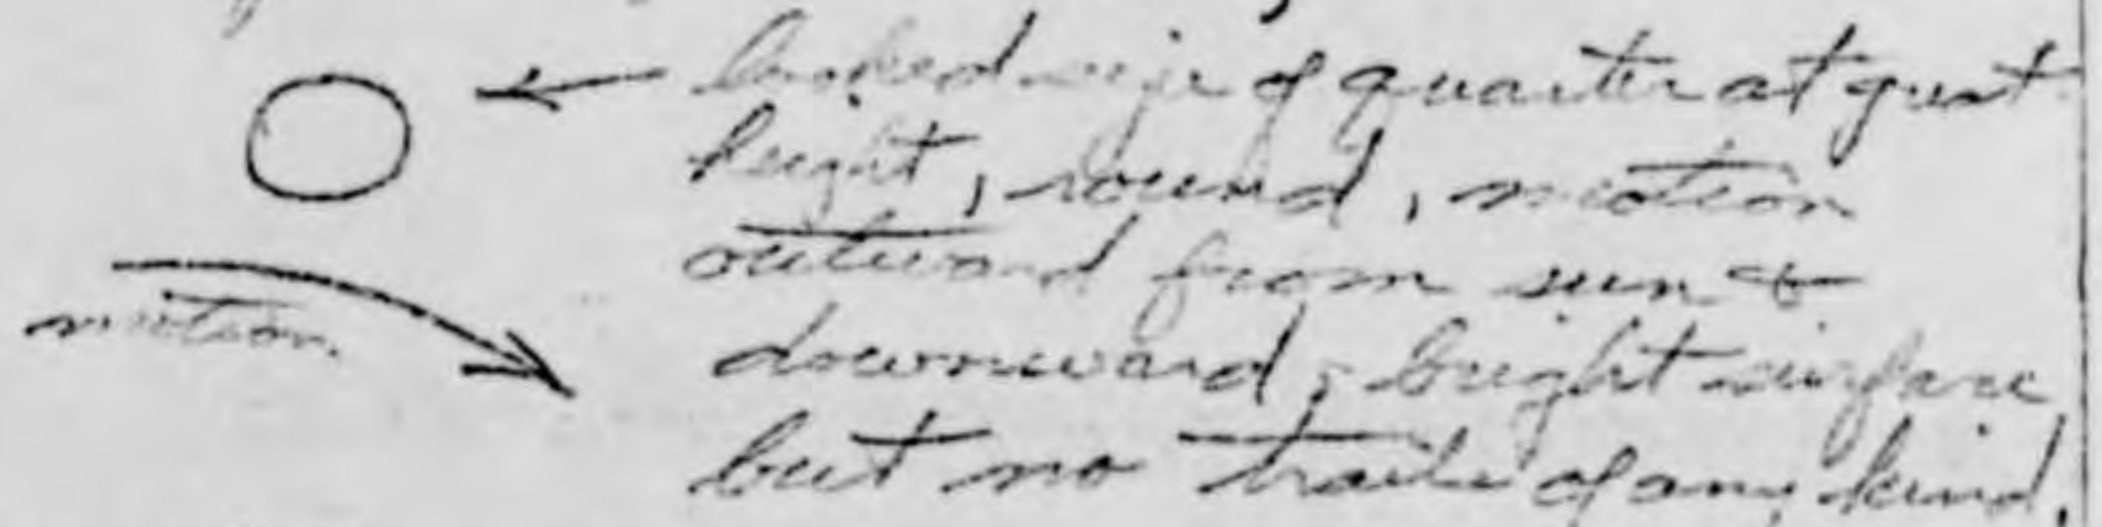 looked size of quarter at great
height, round, motion
outward from sun &
downward, bright surface
but no trails of any kind.
motion.